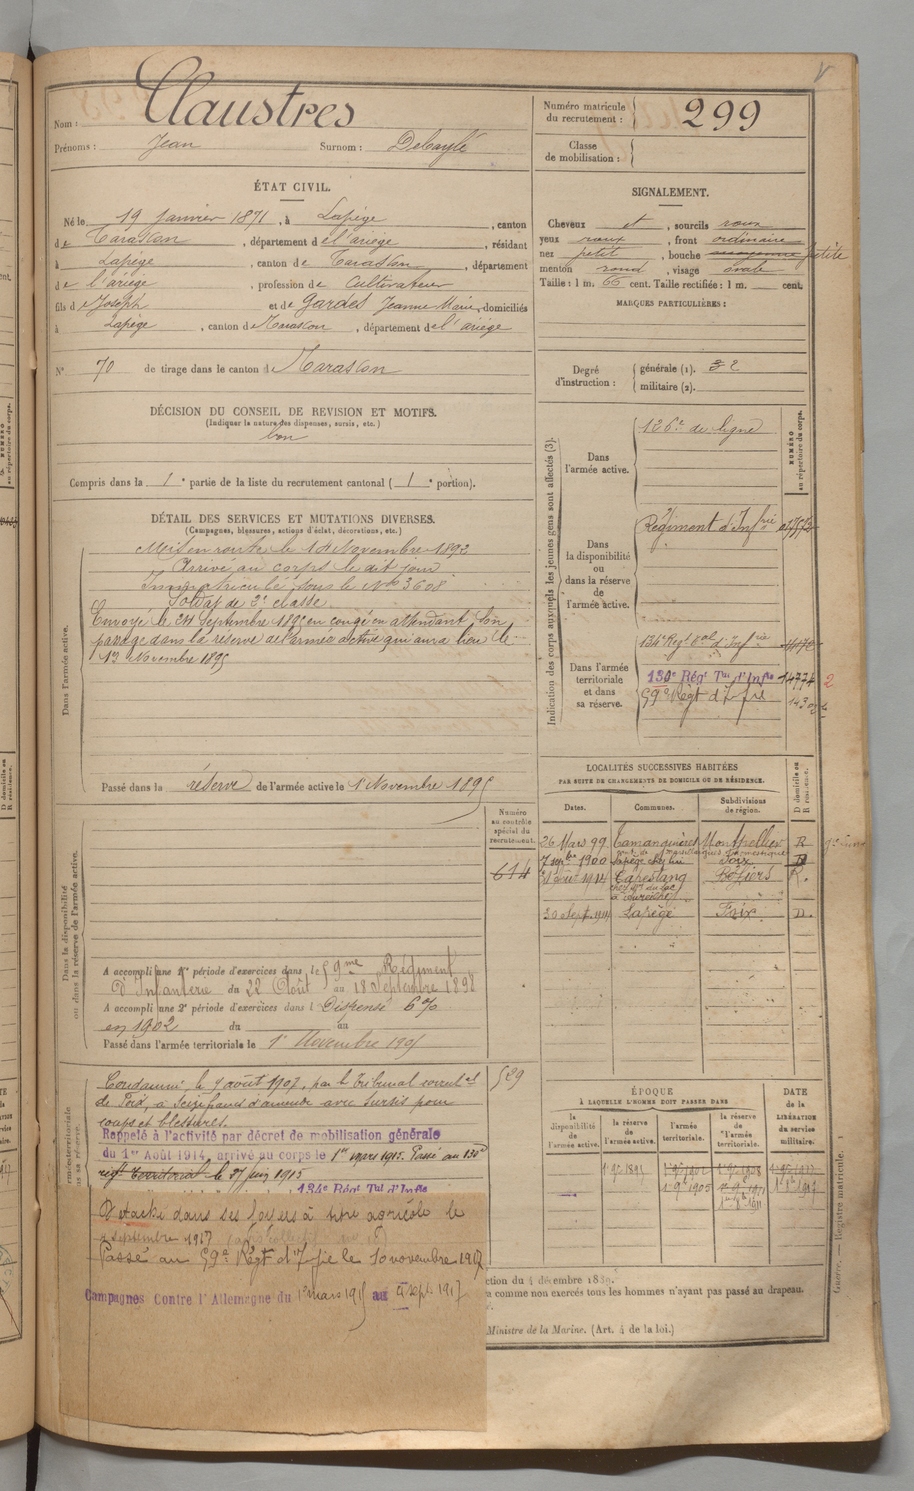 Nom : Claustres
Prénoms : Jean Surnom : Debaylé
ÉTAT CIVIL.
Né le 19 janvier 1871, à Lapège, canton
de Tarascon, département de l'ariège, résidant
à Lapège, canton de Tarascon, département
de l'ariège, profession de Cultivateur
fils de Joseph et de Gardes Jeanne Marie, domiciliés
à Lapège, canton de Tarascon, département de l'ariège
N° 70 de tirage dans le canton de Tarascon
DÉCISION DU CONSEIL DE REVISION ET MOTIFS.
(Indiquer la nature des dispenses, sursis, etc.)
bon
Compris dans la 1e partie de la liste du recrutement cantonal (1e portion).
DÉTAIL DES SERVICES ET MUTATIONS DIVERSES.
(Campagnes, blessures, actions d'éclat, décorations, etc.)
Dans l'armée active.
Mis en route le 14 Novembre 1892
Arrivé au corps le dit jour
Immatriculé sous le N° 3608
Soldat de 2e classe
Envoyé le 24 Septembre 1895 en congé en attendant son
passage dans la réserve de l'armée active qui aura lieu le
1er Novembre 1895
Passé dans la réserve de l'armée active le 1er Novembre 1895
Numéro
au contrôle
spécial du
recrutement.
614
Dans la disponibilité
ou dans la réserve de l'armée active.
A accompli une 1re période d'exercices dans le 59me Régiment
d'Infanterie du 22 Août au 18 Septembre 1898
A accompli une 2e période d'exercices dans l Dispensé 6%
en 1902 du au
Passé dans l'armée territoriale le 1er Novembre 1905
529
Condamné le 7 août 1907, par le tribunal correctel
de Foix, à Seize francs d'amende avec sursis pour
coups et blessures.
Rappelé à l'activité par décret de mobilisation générale
du 1er Août 1914, arrivé au corps le 1er mars 1915. Passé au 130e
régt territorial le 27 juin 1915
134e Régt Tal d'Infie
Détaché dans ses foyers à titre agricole le
septembre 1917
Passé au 59e Régt d'Infie le 10 novembre 1917
Campagnes Contre l'Allemagne du 1er mars 1915 au sept 1917
Numéro matricule
du recrutement : 299
Classe
de mobilisation :
SIGNALEMENT.
Cheveux et, sourcils roux
yeux roux, front ordinaire
nez petit, bouche moyenne petite
menton rond, visage ovale
Taille : 1 m. 66 cent. Taille rectifiée : 1 m. cent.
MARQUES PARTICULIÈRES :
Degré
d'instruction :
générale (1). 2
militaire (2).
Indication des corps auxquels les jeunes gens sont affectés (3).
NUMÉRO
au répertoire du corps.
Dans
l'armée active.
126e de ligne
Dans
la disponibilité
ou
dans la réserve
de
l'armée active.
Régiment d'Infrie
Dans l'armée
territoriale
et dans
sa réserve.
134e Régt tal d'Infrie
130e Régt Tal d'Infie 14774 2
59e Régt d'Infie
LOCALITÉS SUCCESSIVES HABITÉES
PAR SUITE DE CHANGEMENTS DE DOMICILE OU DE RÉSIDENCE.
Dates. Communes. Subdivisions
de région. D domicile ou
R résidence.
26 Mars 99 Montpellier R
7 septbre 1900 Lapège Foix D
Capestang Béziers R.
30 Sept. 1914 Lapège Foix D.
ÉPOQUE
À LAQUELLE L'HOMME DOIT PASSER DANS
DATE
de la
LIBÉRATION
du service
militaire.
la
disponibilité
de
l'armée active.
la réserve
de
l'armée active.
l'armée
territoriale.
la réserve
de
l'armée
territoriale.
1er 9bre 1895
1er 9bre 1905
ction du 4 décembre 1889.
a comme non exercés tous les hommes n'ayant pas passé au drapeau.
Ministre de la Marine. (Art. 4 de la loi.)
Guerre. — Registre matricule.